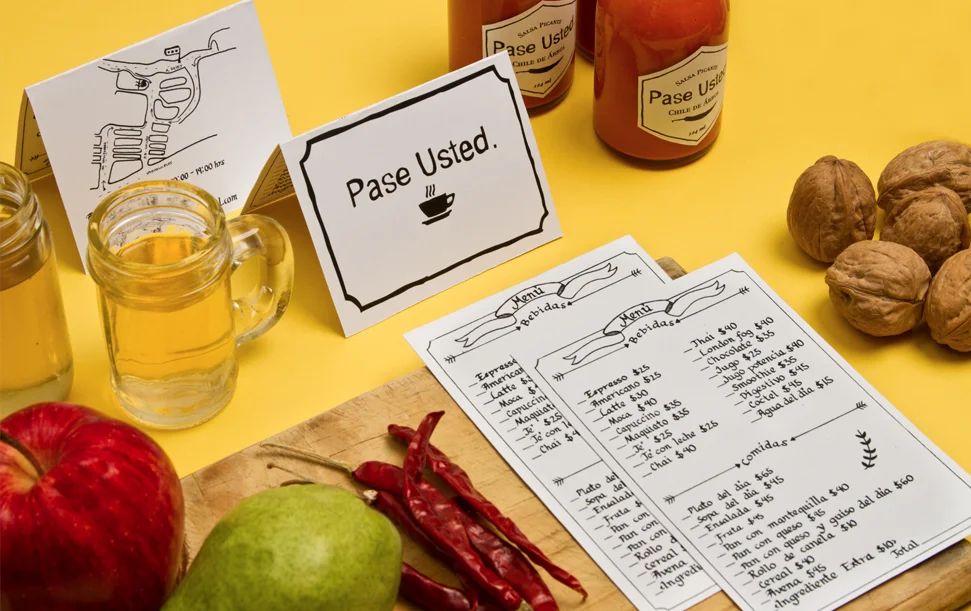 19:00 hrs
.com
Pase Usted.
Salsa Picante
Pase Usted
Chile de Árbol
Salsa Picante
Pase Usted
Chile de Árbol
Menú
Bebidas
Espresso
Latte
Moca
Menú
Bebidas
Espresso $25
Americano $25
Latte $30
Moca $40
Capuccino $35
Maquiato $35
Te' $25
Te' con leche $25
Chai $40
Thai $40
London fog $40
Chocolate $35
Jugo $25
Jugo potencia $40
Smoothie $35
Digestivo $40
Coctel $45
Agua del día $15
Comidas
Plato del día $65
Sopa del día $45
Ensalada $45
Fruta $45
Pan con mantequilla $40
Pan con queso $45
Pan con queso y guiso del día $60
Rollo de canela $10
Cereal $40
Avena $45
Ingrediente Extra $10
Total
Plato del
Sopa del
Ensalada
Fruta
Pan con
Pan con
Pan con
Rollo d
Cereal
Avena
Ingredi